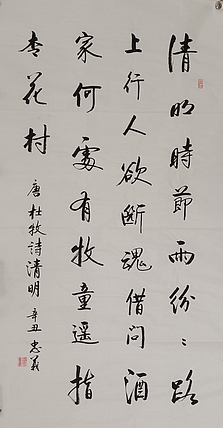 清明時節雨紛〻路
上行人欲斷魂借問酒
家何處有牧童遥指
杏花村
唐杜牧詩清明 辛丑 忠義